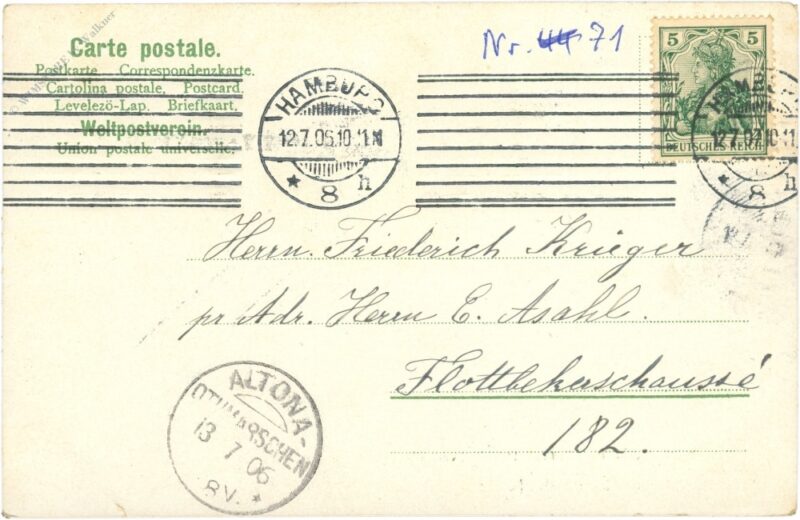 Carte postale.
Nr. 44 71
Postkarte. Correspondenzkarte.
Cartolina postale. Postcard.
Levelezö-Lap. Briefkaart.
Weltpostverein.
Union postale universelle.
HAMBURG
12.7.06.10-11 N
* 8 h
5 5
DEUTSCHES REICH
HAM
12.7.06.10-11
* 8 h
Herrn. Friederich Krieger
pr Adr. Herrn E. Asahl.
Flottbekerschaussé
182.
ALTONA-
OTHMARSCHEN
13 7 06
8V. *